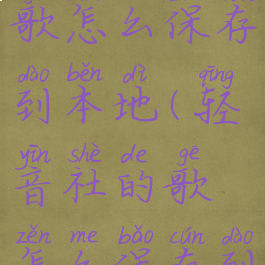 歌怎么保存
dào běn dì qīng
到本地(轻
yīn shè de gē
音社的歌
zěn me bǎo cún dào
怎么保存到